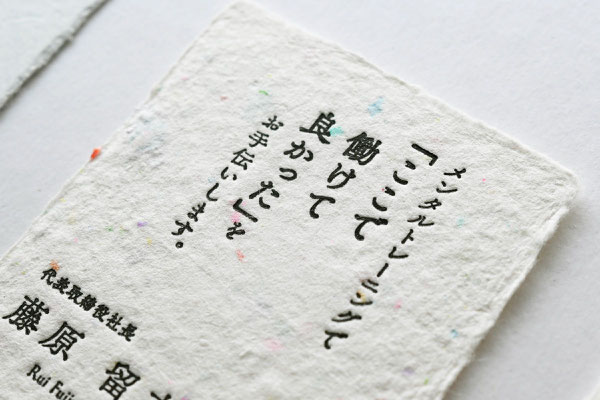 メンタルトレーニングで
「ここで
働けて
良かった」を
お手伝いします。
代表取締役社長
藤原 留
Rui Fuji